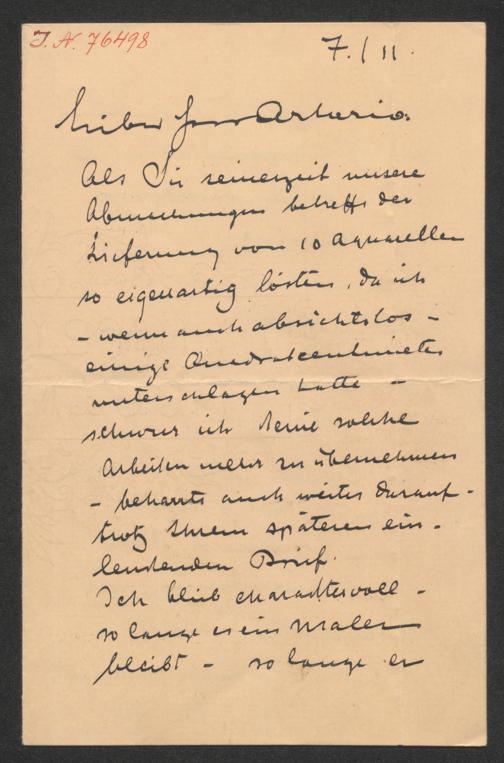 J. N. 76498
7./11.
Lieber Herr Artaria.
Als Sie seinerzeit unsere
Abmachungen betreffs der
Lieferung von 10 Aquarellen
so eigenartig lösten, da ich
- wenn auch absichtslos -
einige Quadratcentimeter
unterschlagen hatte -
schwur ich keine solche
Arbeiten mehr zu übernehmen
- beharrte auch weiter darauf -
trotz Ihrem späteren ein-
lenkenden Brief.
Ich blieb charaktervoll -
so lange es ein Maler
bleibt - so lange er